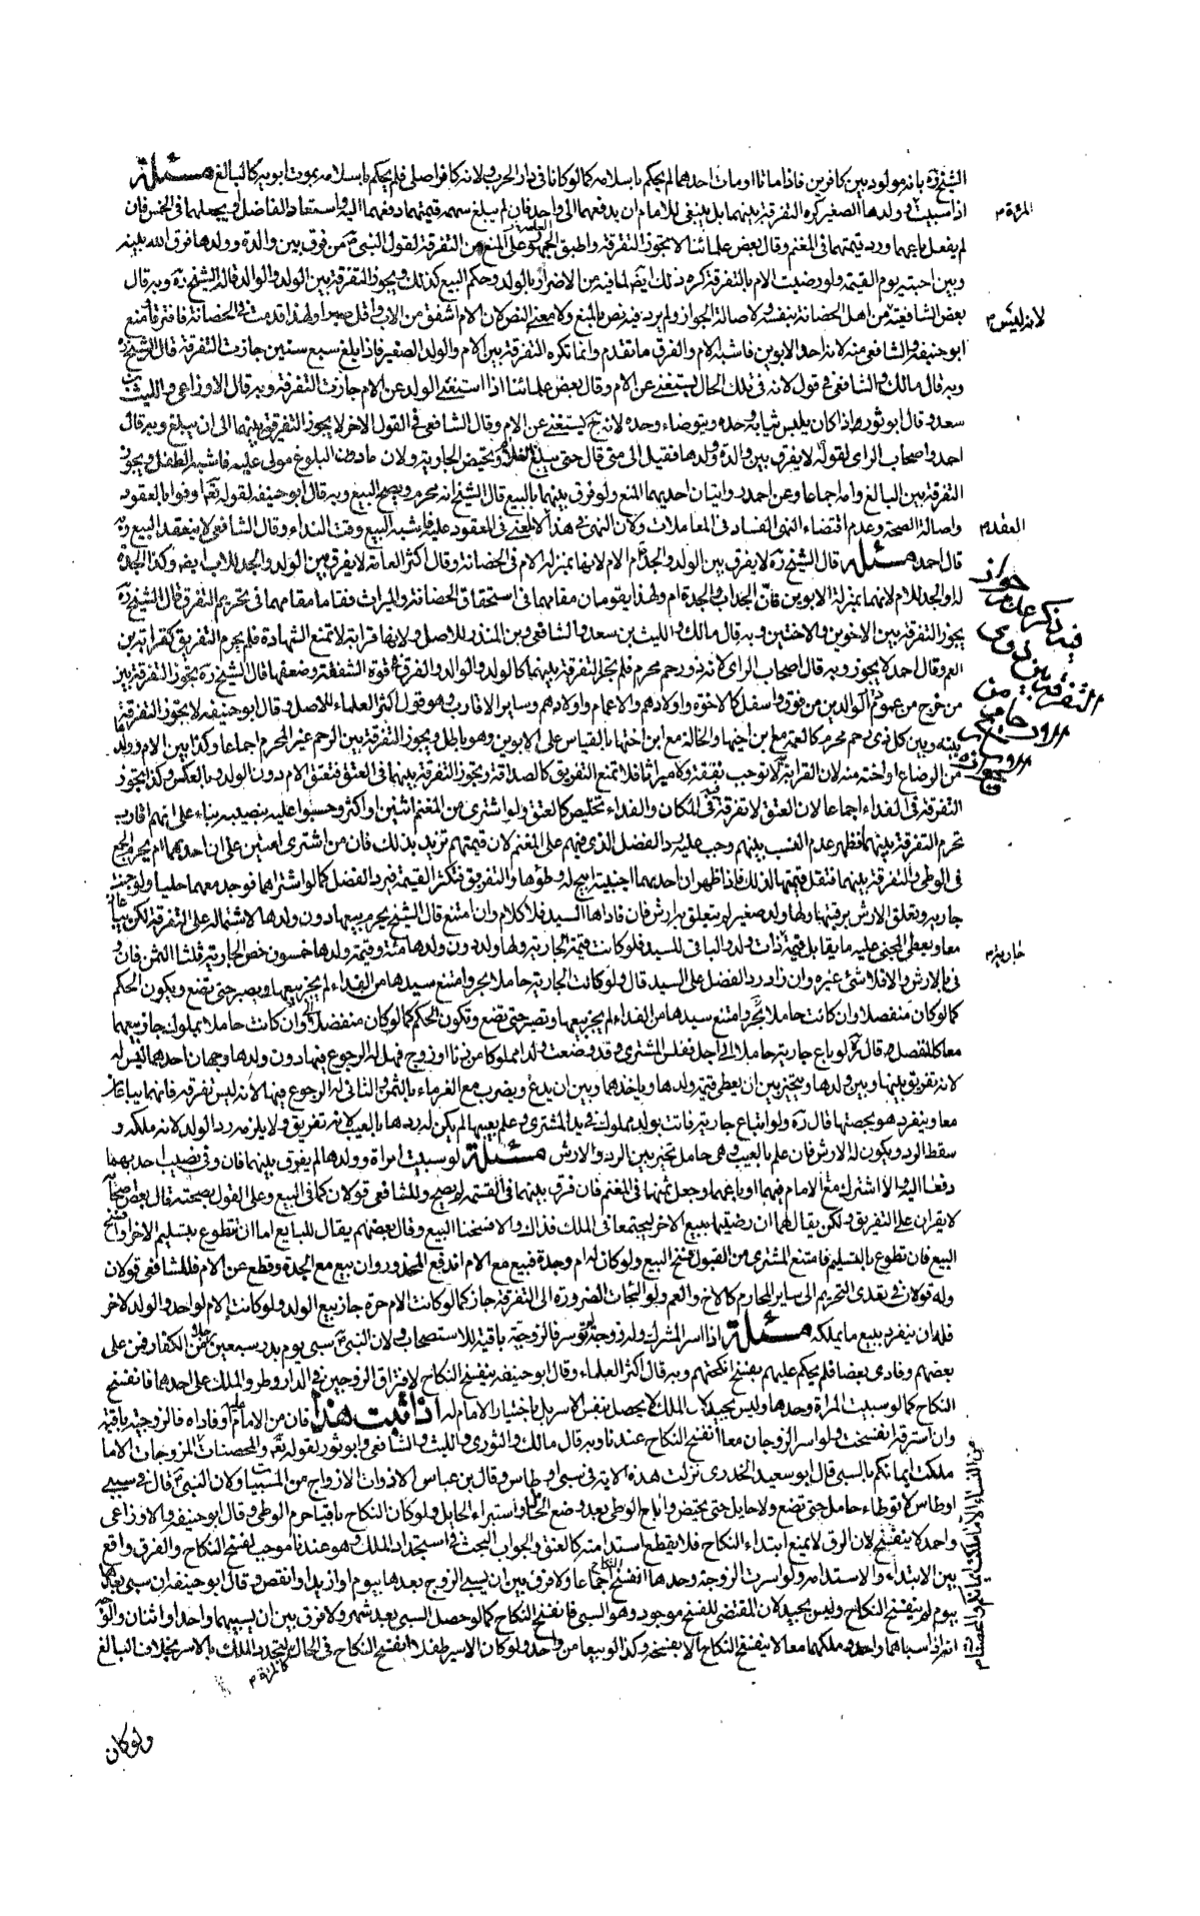 الشيخ ره بانه مولود بين كافرين فاذا ماتا او مات احدهما لم يحكم باسلامه كما لو كانا في دار الحرب ولانه كافر اصلي فلم يحكم باسلامه بموت ابويه كالبالغ مسئلة
اذا سبيت وولدها الصغير كره التفرقة بينهما بل ينبغي للامام ان يدفعهما الى واحد فان لم يبلغ سهمه قيمتهما دفعهما اليه واستعاد الفاضل او يجعلهما في الخمس فان
لم يفعل باعهما ورد قيمتهما في المغنم وقال بعض علمائنا لا تجوز التفرقة واطبق الجمهور على المنع من التفرقة لقول النبي من فرق بين والدة وولدها فرق الله بينه
وبين احبته يوم القيمة ولو رضيت الام بالتفرقة كره ذلك ايضا لما فيه من الاضرار بالولد وحكم البيع كذلك ويجوز التفرقة بين الولد والوالد قاله الشيخ ره وبه قال
بعض الشافعية من اهل الحضانة بنفسه ولاصالة الجواز ولم يرد فيه نص بالمنع ولا معنى النص لان الام اشفق من الاب واقل صبرا ولهذا قدمت في الحضانة فافترقا ومنع
ابو حنيفة والشافعي منه لانه احد الابوين فاشبه الام والفرق ما تقدم وانما تكره التفرقة بين الام والولد الصغير فاذا بلغ سبع سنين جازت التفرقة قال الشيخ ره
وبه قال مالك والشافعي في قول لانه في تلك الحال يستغني عن الام وقال بعض علمائنا اذا استغنى الولد عن الام جازت التفرقة وبه قال الاوزاعي والليث بن
سعد وقال ابو ثور اذا كان يلبس ثيابه وحده ويتوضاء وحده لانه ح يستغني عن الام وقال الشافعي في القول الاخر لا يجوز التفرقة بينهما الى ان يبلغ وبه قال
احمد واصحاب الراى لقوله لا يفرق بين والدة وولدها فقيل الى متى قال حتى يبلغ الغلام وتحيض الجارية ولان ما دون البلوغ مولى عليه فاشبه الطفل ويجوز
التفرقة بين البالغ وامه اجماعا وعن احمد روايتان احديهما المنع ولو فرق بينهما بالبيع قال الشيخ انه محرم ويصح البيع وبه قال ابو حنيفة لقوله تعا اوفوا بالعقود
واصالة الصحة وعدم اقتضاء النهي الفساد في المعاملات ولان النهي في هذا لا لمعنى في المعقود عليه فاشبه البيع وقت النداء وقال الشافعي لا ينعقد البيع وبه
قال احمد مسئلة قال الشيخ ره لا يفرق بين الولد والجدة ام الام لانها بمنزلة الام في الحضانة وقال اكثر العامة لا يفرق بين الولد والجد للاب ايضا وكذا الجدة
له او الجد للام لانهما بمنزلة الابوين فان الجد اب والجدة ام ولهذا يقومان مقامهما في استحقاق الحضانة والميراث فقاما مقامهما في تحريم التفرق قال الشيخ ره
يجوز التفرقة بين الاخوين والاختين وبه قال مالك والليث بن سعد والشافعي وبن المنذر للاصل ولانها قرابة لا تمنع الشهادة فلم يحرم التفريق كقرابة بن
العم وقال احمد لا يجوز وبه قال اصحاب الراى لانه ذو رحم محرم فلم يجز التفرقة بينهما كالولد والوالد والفرق قوة الشفقة وضعفها قال الشيخ ره تجوز التفرقة بين
من خرج من عمودي الوالدين من فوق واسفل كالاخوة واولادهم والاعمام واولادهم وساير الاقارب وهو قول اكثر العلماء للاصل وقال ابو حنيفة لا يجوز التفرقة
بينه وبين كل ذي رحم محرم كالعمة مع ابن اخيها والخالة مع ابن اختها بالقياس على الابوين وهو باطل ويجوز التفرقة بين الرحم غير المحرم اجماعا وكذا بين الام وولدها
من الرضاع او اخته منه لان القرابة لا توجب نفقة ولا ميراثا فلا تمنع التفريق كالصداقة ويجوز التفرقة بينهما في العتق فتعتق الام دون الولد وبالعكس وكذا يجوز
التفرقة في الفداء اجماعا لان العتق لا تفرقة فيه في المكان والفداء تخليص كالعتق ولو اشترى من المغنم اثنين او اكثر وحسبوا عليه بنصيبه بناء على انهم اقارب
تحرم التفرقة بينهما فظهر عدم النسب بينهم وجب عليه رد الفضل الذي فيهم على المغنم لان قيمتهم تزيد بذلك فان من اشترى امتين على ان احدهما ام يحرم الجمع
في الوطى والتفرقة بينهما فتقل قيمتها لذلك فاذا ظهر ان احديهما اجنبية ابيح له وطؤها والتفريق فتكثر القيمة فيرد الفضل كما لو اشتراهما فوجد معهما حليا ولو جنت
جارية وتعلق الارش برقبتها ولها ولد صغير لم يتعلق به ارش فان فاداها السيد فلا كلام وان امتنع قال الشيخ يحرم بيعها دون ولدها لاشتماله على التفرقة لكن يباعان
معا ويعطى المجني عليه ما يقابل قيمة ذات ولد والباقي للسيد فلو كانت قيمة الجارية ولها ولد دون ولدها مئة وقيمة ولدها خمسون خص الجارية ثلثا الثمن فان
وفى بالارش والا فلا شئ غيره وان زاد رد الفضل على السيد قال ولو كانت الجارية حاملا بحر وامتنع سيدها من الفداء لم يجز بيعها ويصبر حتى تضع ويكون الحكم
كما لو كان منفصلا وان كانت حاملا بحر وامتنع سيدها من الفداء لم يجز بيعها وتصبر حتى تضع وتكون الحكم كما لو كان منفصلا وان كانت حاملا بمملوك جاز بيعهما
معا كالمنفصل قال ره لو باع جارية حاملا الى اجل ففلس المشتري وقد وضعت ولدا مملوكا من زنا او زوج فهل له الرجوع فيها دون ولدها وجهان احدهما ليس له
لانه تفريق بينها وبين ولدها ويتخير بين ان يعطى قيمة ولدها وياخذها وبين ان يدع ويضرب مع الغرماء بالثمن والثاني له الرجوع فيها لانه ليس تفرقة فانهما يباعان
معا وينفرد هو بحصتها قال ره ولو ابتاع جارية فاتت بولد مملوك في يد المشتري وعلم بعيبها لم يكن له ردها بالعيب لانه تفريق ولا يلزمه رد الولد لانه ملكه و
سقط الرد ويكون له الارش فان علم بالعيب وهي حامل تخير بين الرد والارش مسئلة لو سبيت امراة وولدها لم يفرق بينهما فان وفى نصيب احد بهما
دفعا اليه والا اشترك مع الامام فيهما او باعهما وجعل ثمنهما في المغنم فان فرق بينهما في القسمة لم يصح وللشافعي قولان كما في البيع وعلى القول بصحته قال بعض اصحابه
لا يقران على التفريق ولكن يقال لهما ان رضيتما ببيع الاخر ليجتمعا في الملك فذاك والا فسخنا البيع وقال بعضهم يقال للبايع اما ان تتطوع بتسليم الاخر او فسخ
البيع فان تطوع بالتسليم فامتنع المشتري من القبول فسخ البيع ولو كان له ام وجدة فبيع مع الام اندفع المحذور وان بيع مع الجدة وقطع عن الام فللشافعي قولان
وله قولان في تعدى التحريم الى ساير المحارم كالاخ والعم ولو الجات الضرورة الى التفرقة جاز كما لو كانت الام حرة جاز بيع الولد ولو كانت الام لواحد والولد لاخر
فلهما ان ينفرد ببيع ما يملكه مسئلة اذا اسر المشرك وله زوجة لم توسر فالزوجية باقية للاستصحاب ولان النبي سبى يوم بدر سبعين رجلا من الكفار فمن على
بعضهم وفادى بعضا فلم يحكم عليهم بفسخ انكحتهم وبه قال اكثر العلماء وقال ابو حنيفة ينفسخ النكاح لافتراق الزوجين في الدار وطرو الملك على احدهما فانفسخ
النكاح كما لو سبيت المراة وحدها وليس بجيد لان الملك لا يحصل بنفس الاسر بل باختيار الامام له اذا ثبت هذا فان من الامام عليه او فاداه فالزوجية باقية
وان استرقه انفسخت ولو اسر الزوجان معا انفسخ النكاح عندنا وبه قال مالك والثوري والليث والشافعي وابو ثور لقوله تعا والمحصنات المزوجات الا ما
ملكت ايمانكم بالسبي قال ابو سعيد الخدري نزلت هذه الاية في سبي اوطاس وقال بن عباس الا ذوات الازواج من المسبيات ولان النبي قال في سبي
اوطاس لا توطاء حامل حتى تضع ولا حايل حتى تحيض واباح الوطى بعد وضع الحامل واستبراء الحايل ولو كان النكاح باقيا حرم الوطى وقال ابو حنيفة والاوزاعي
واحمد لا ينفسخ لان الرق لا يمنع ابتداء النكاح فلا يقطع استدامته كالعتق والجواب البحث في استجداد الملك وهو عندنا موجب لفسخ النكاح والفرق واقع
بين الابتداء والاستدامة ولو اسرت الزوجة وحدها انفسخ النكاح اجماعا ولا فرق بين ان يسبى الزوج بعدها بيوم او ازيد او انقص وقال ابو حنيفة ان سبي بعدها
بيوم لم ينفسخ النكاح وليس بجيد لان المقتضي للفسخ موجود وهو السبي فانفسخ النكاح كما لو حصل السبي بعد شهر ولا فرق بين ان يسبيهما واحد او اثنان والوجه
انه اذا سباهما واحد وملكهما معا لا ينفسخ النكاح الا بفسخه وكذا لو بيعا من واحد ولو كان الاسير طفلا انفسخ النكاح في الحال لتجدد الملك بالاسر بخلاف البالغ
كالمرئة م
ولو كان
المرئة م
لانه ليس م
المقدم
فيه ذكر علل جواز
التفرقة بين ذوي
جارية م
من النساء الا ما ملكت ايمانكم